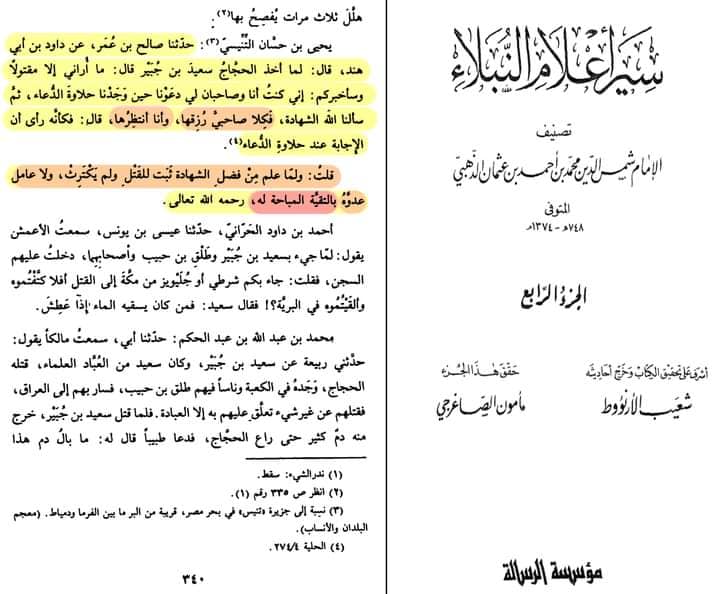 سير أعلام النبلاء
تصنيف
الإمام شمس الدين محمد بن أحمد بن عثمان الذهبي
المتوفى
٧٤٨هـ - ١٣٧٤م
الجزء الرابع
أشرف على تحقيق الكتاب وخرج أحاديثه
شعيب الأرنؤوط
حقق هذا الجزء
مأمون الصاغرجي
مؤسسة الرسالة
هلَّلَ ثلاث مرات يُفصِحُ بها(٢).
يحيى بن حسَّان التِّنِّيسيّ(٣): حدّثنا صالح بن عُمَر، عن داود بن أبي
هند، قال: لما أخذ الحجاجُ سعيدَ بن جُبَيْر قال: ما أُراني إلا مقتولاً
وسأخبركم: إني كنتُ أنا وصاحبان لي دعَوْنا حين وَجَدْنا حلاوةَ الدُّعاء، ثمَّ
سألنا اللهَ الشهادة، فكِلا صاحبيَّ رُزِقها، وأنا أنتظِرُها، قال: فكأنَّه رأى أن
الإجابة عند حلاوةِ الدُّعاء(٤).
قلتُ: ولمَّا علم مِنْ فضلِ الشهادة ثَبَت للقتْلِ ولم يَكْتَرِثْ، ولا عامل
عدوَّهُ بالتقيَّة المباحة له، رحمه الله تعالى.
أحمد بن داود الحَرّانيّ، حدّثنا عيسى بن يونس، سمعتُ الأعمش
يقول: لمّا جيء بسعيد بن جُبَيْر وطَلْقِ بن حبيب وأصحابِهما، دخلتُ عليهم
السجن، فقلت: جاء بكم شرطي أو جُلَيْويز من مكّة إلى القتل أفلا كتَّفْتُموه
وألقيْتُموه في البريَّة؟! فقال سعيد: فمن كان يسقيه الماء إذا عَطِشَ.
محمد بن عبد الله بن عبد الحكم: حدّثنا أبي، سمعتُ مالكاً يقول:
حدّثني ربيعة عن سعيد بن جُبَيْر، وكان سعيد من العُبَّاد العلماء، قتله
الحجاج، وَجَدهُ في الكعبة وناساً فيهم طلق بن حبيب، فسار بهم إلى العراق،
فقتلهم عن غير شيء تعلَّق عليهم به إلا العبادة. فلما قتل سعيد بن جُبَيْر، خرج
منه دمٌ كثير حتى راع الحجَّاج، فدعا طبيباً قال له: ما بالُ دم هذا
(١) ندر الشيء: سقط.
(٢) انظر ص ٣٣٥ رقم (١).
(٣) نسبة إلى جزيرة «تنيس» في بحر مصر، قريبة من البر ما بين الفرما ودمياط. (معجم
البلدان والأنساب).
(٤) الحلية ٢٧٤/٤.
٣٤٠